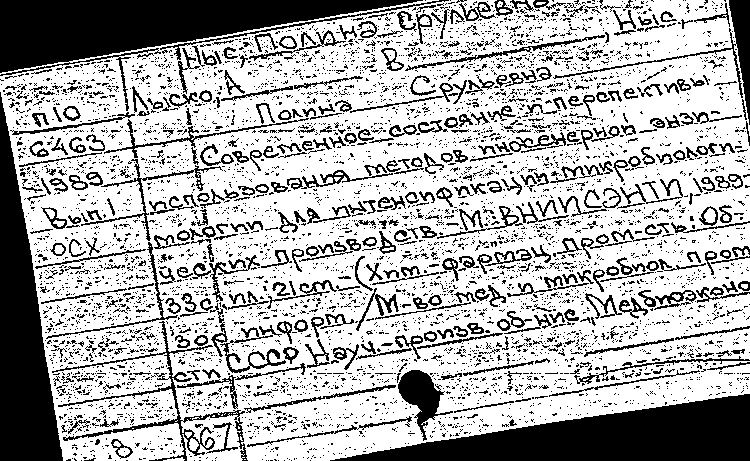 Ныс, Полина Срульевна
Лыско, А В , Ныс,
П10 Полина Срульевна
6463 Современное состояние и перспективы
1989 использования методов инженерной энзи-
Вып.1 мологии для интенсификации микробиологи-
ОСХ ческих производств.-М.:ВНИИСЭНТИ,1989.-
33с.: ил.; 21см.-(Хим.-фармац. пром-сть: Об-
зор. информ./М-во мед. и микробиол. пром-
сти СССР, Науч.-произв. об-ние „Медбиоэконо
8 867